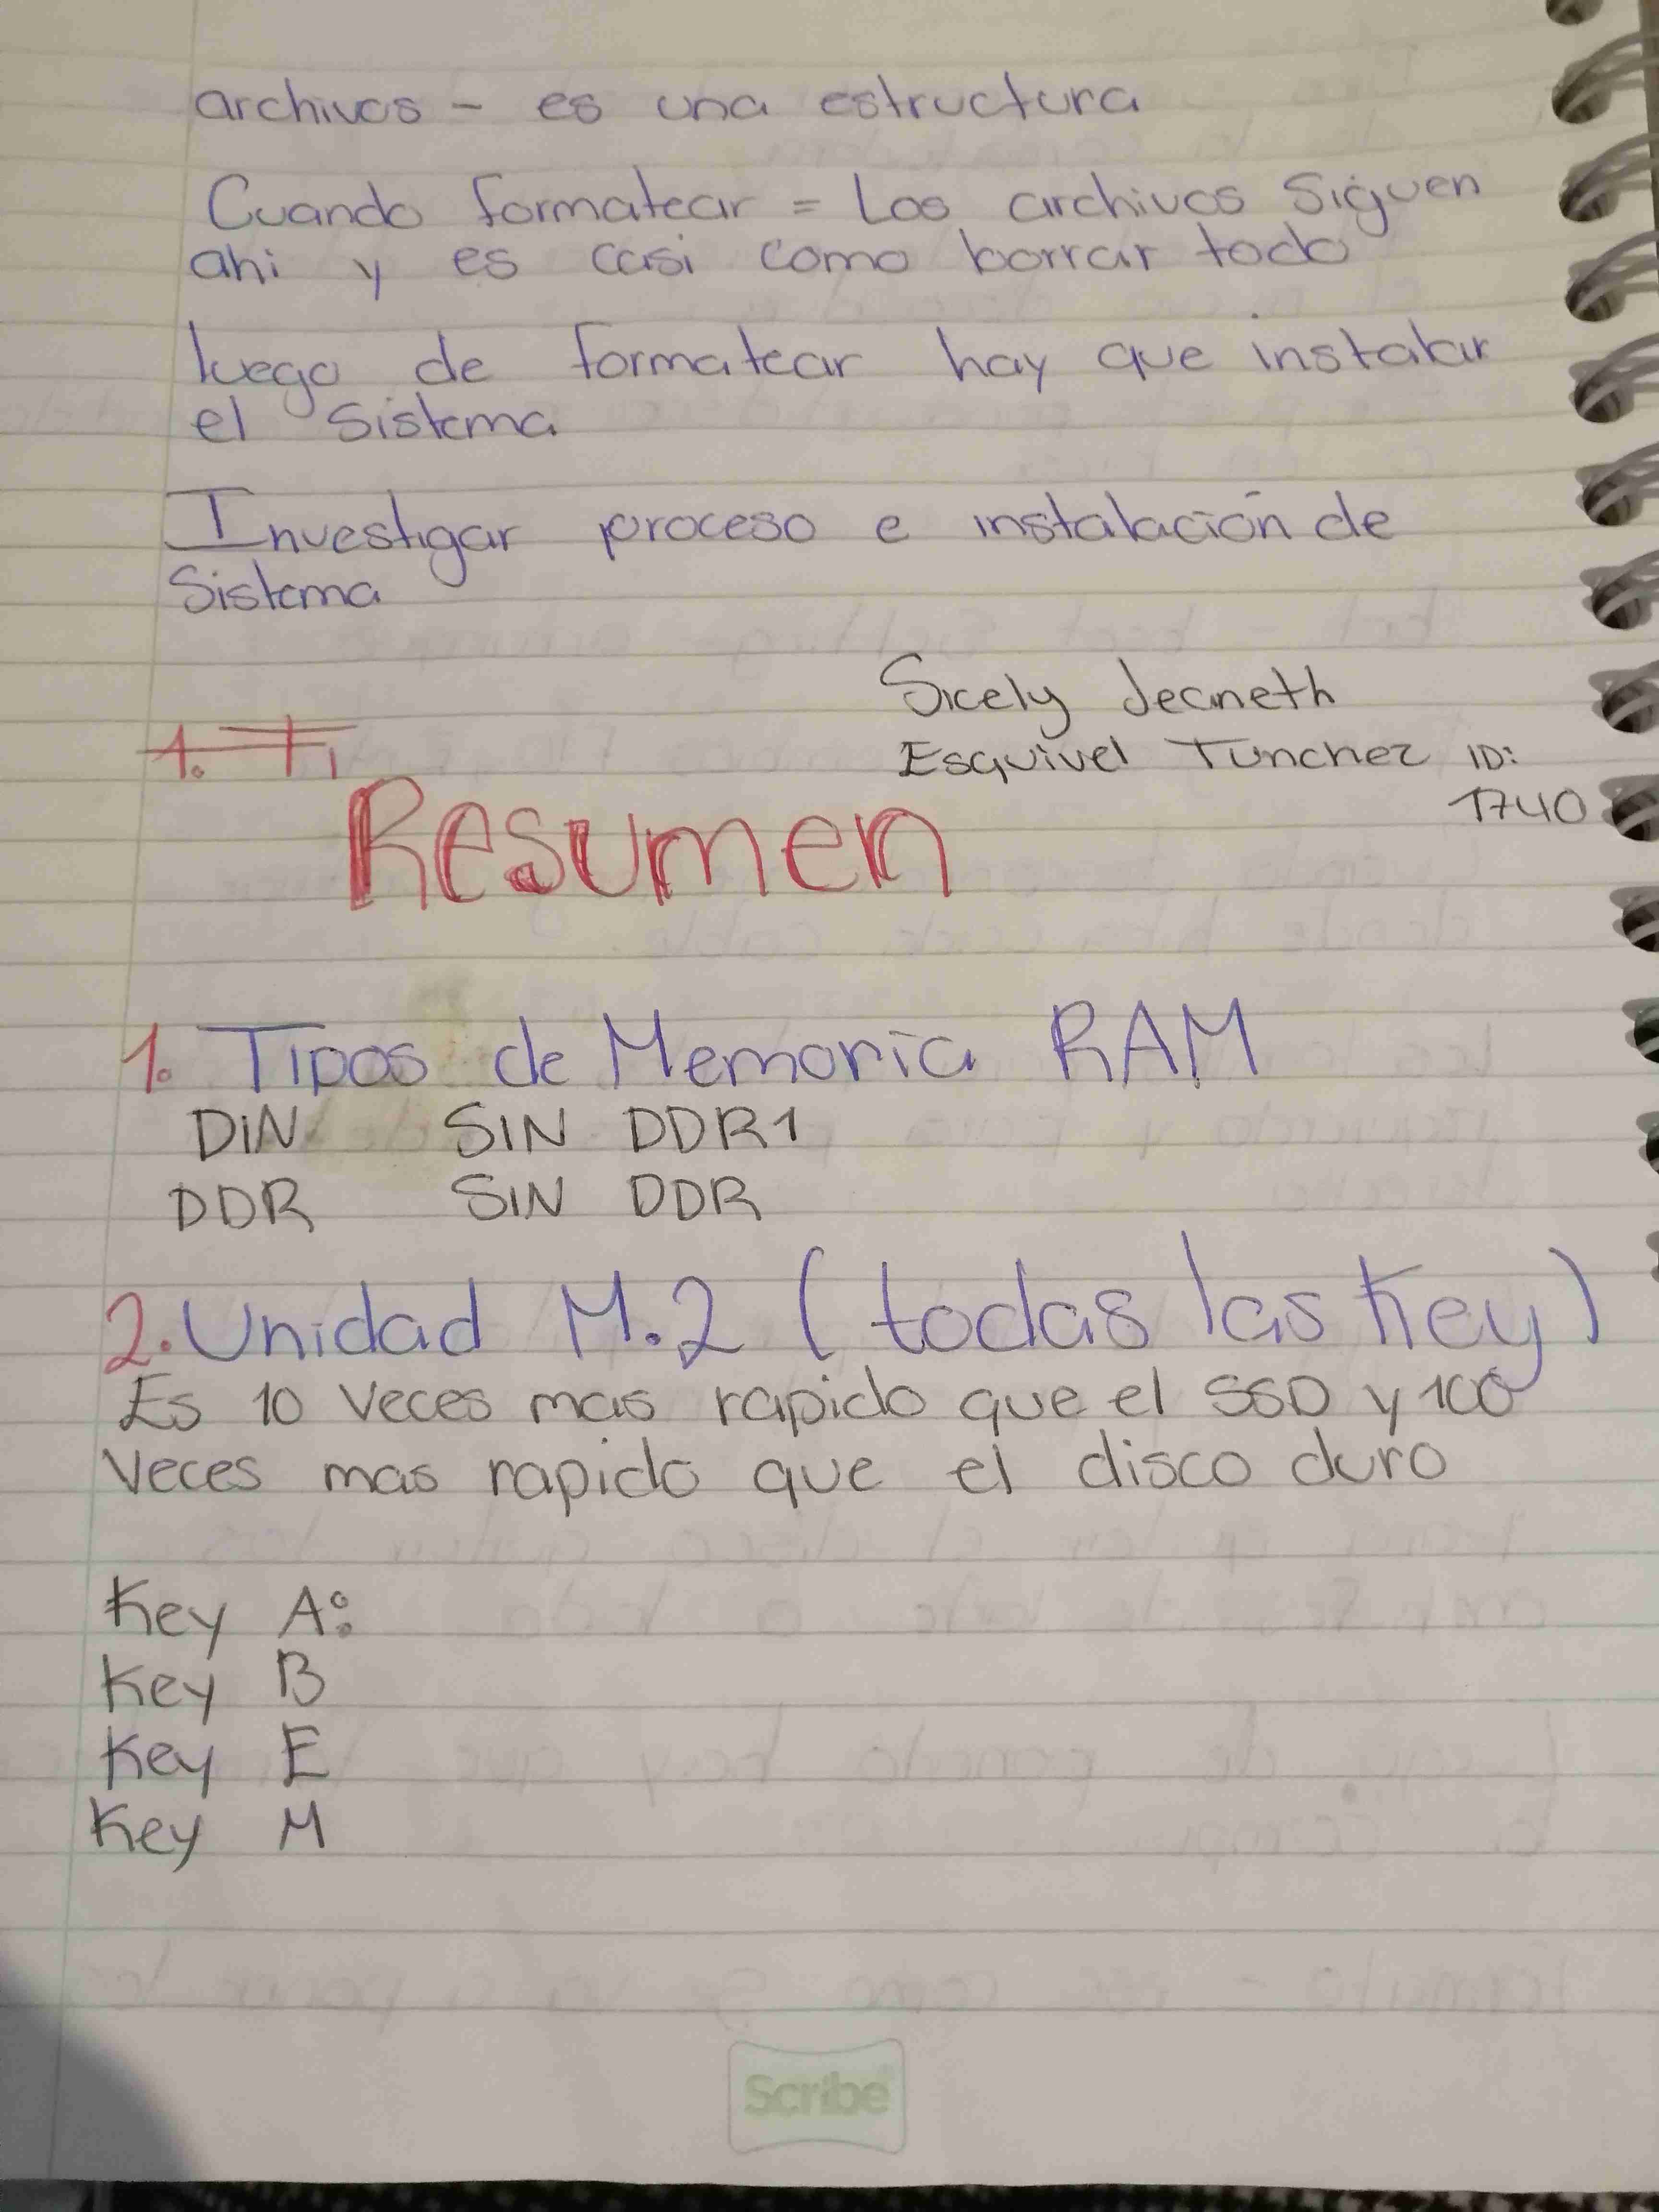 archivos - es una estructura
Cuando formatear = Los archivos siguen
ahi y es casi como borrar todo
luego de formatear hay que instalar
el sistema
Investigar proceso e instalación de
Sistema
Sicely Jeaneth
Esquivel Tunchez ID:
1740
1. T,
Resumen
1. Tipos de Memoria RAM
DiN SIN DDR1
DDR SIN DDR
2. Unidad M.2 (todas las Key)
Es 10 Veces mas rapido que el SSD y 100
Veces mas rapido que el disco duro
Key A:
Key B
Key E
Key M
Scribe